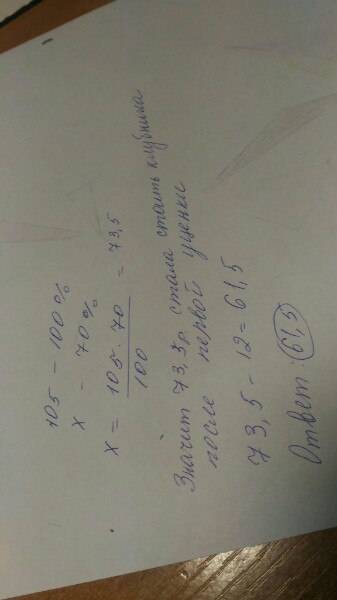 105 - 100%
x - 70%
x = 105 · 70 / 100 = 73,5
Значит 73,5р. стала стоить клубника
после первой уценки
73,5 - 12 = 61,5
Ответ: 61,5